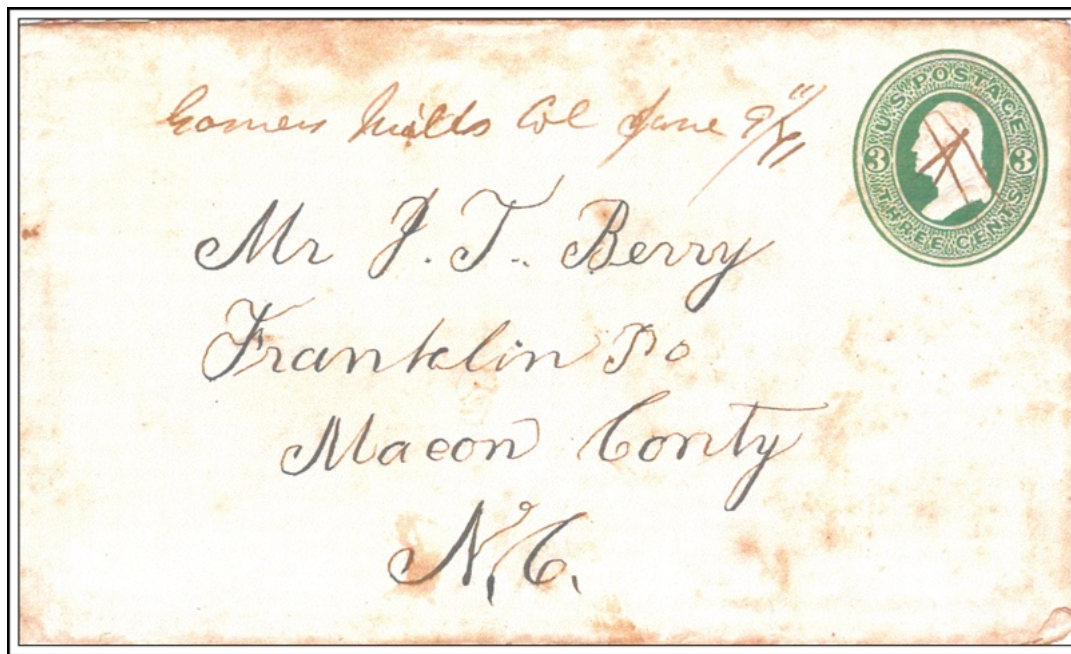 Gomers Mills Col June 9/71
U.S. POSTAGE
3 3
THREE CENTS
Mr J. T. Berry
Franklin Po
Macon Conty
N.C.